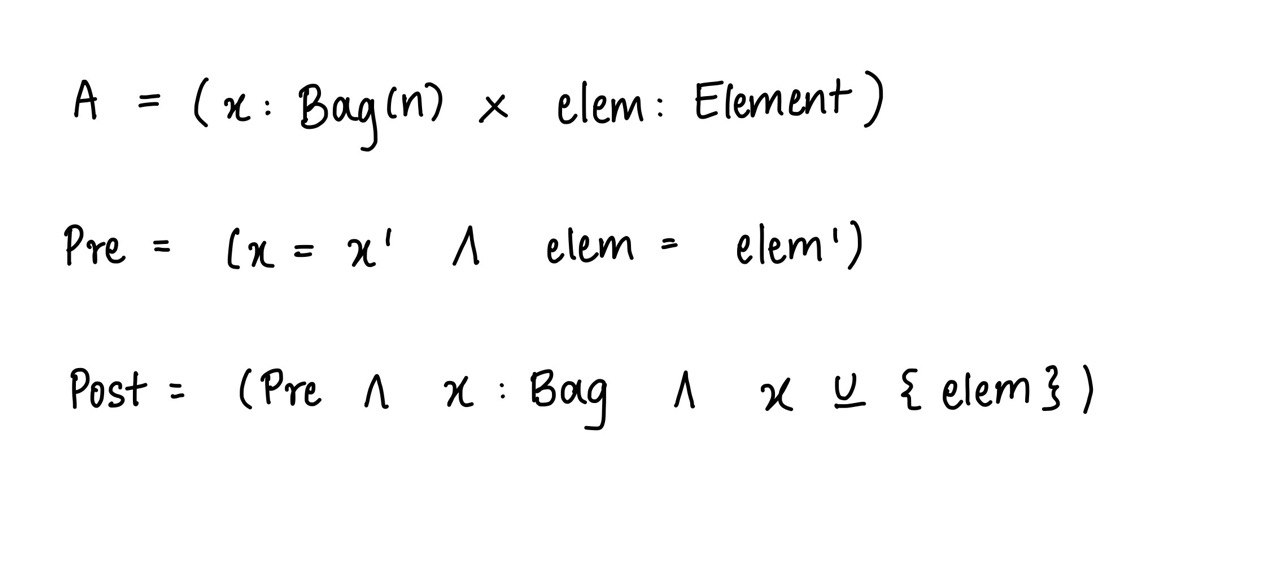 A = (x: Bag(n) × elem: Element)
Pre = (x = x' ∧ elem = elem')
Post = (Pre ∧ x : Bag ∧ x ⊍ { elem })